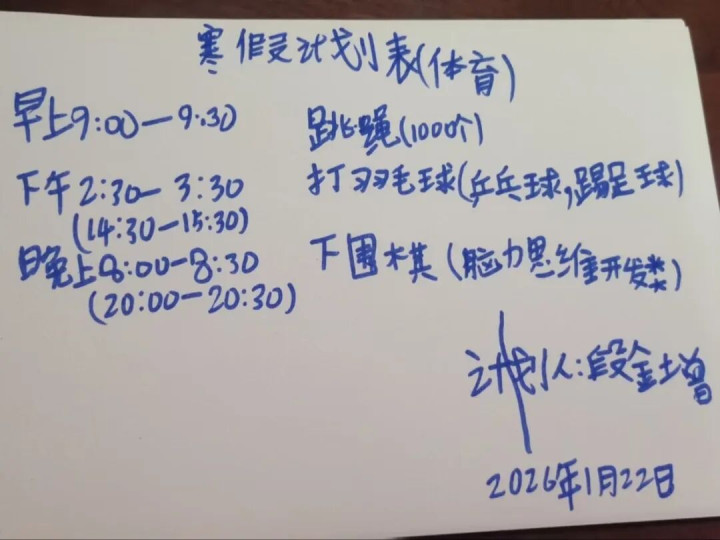 寒假计划表(体育)
早上9:00—9:30 跳绳(1000个)
下午2:30—3:30 打羽毛球(乒乓球,踢足球)
(14:30—15:30)
晚上8:00—8:30 下围棋(脑力思维开发**)
(20:00—20:30)
计划人:段金增
2026年1月22日